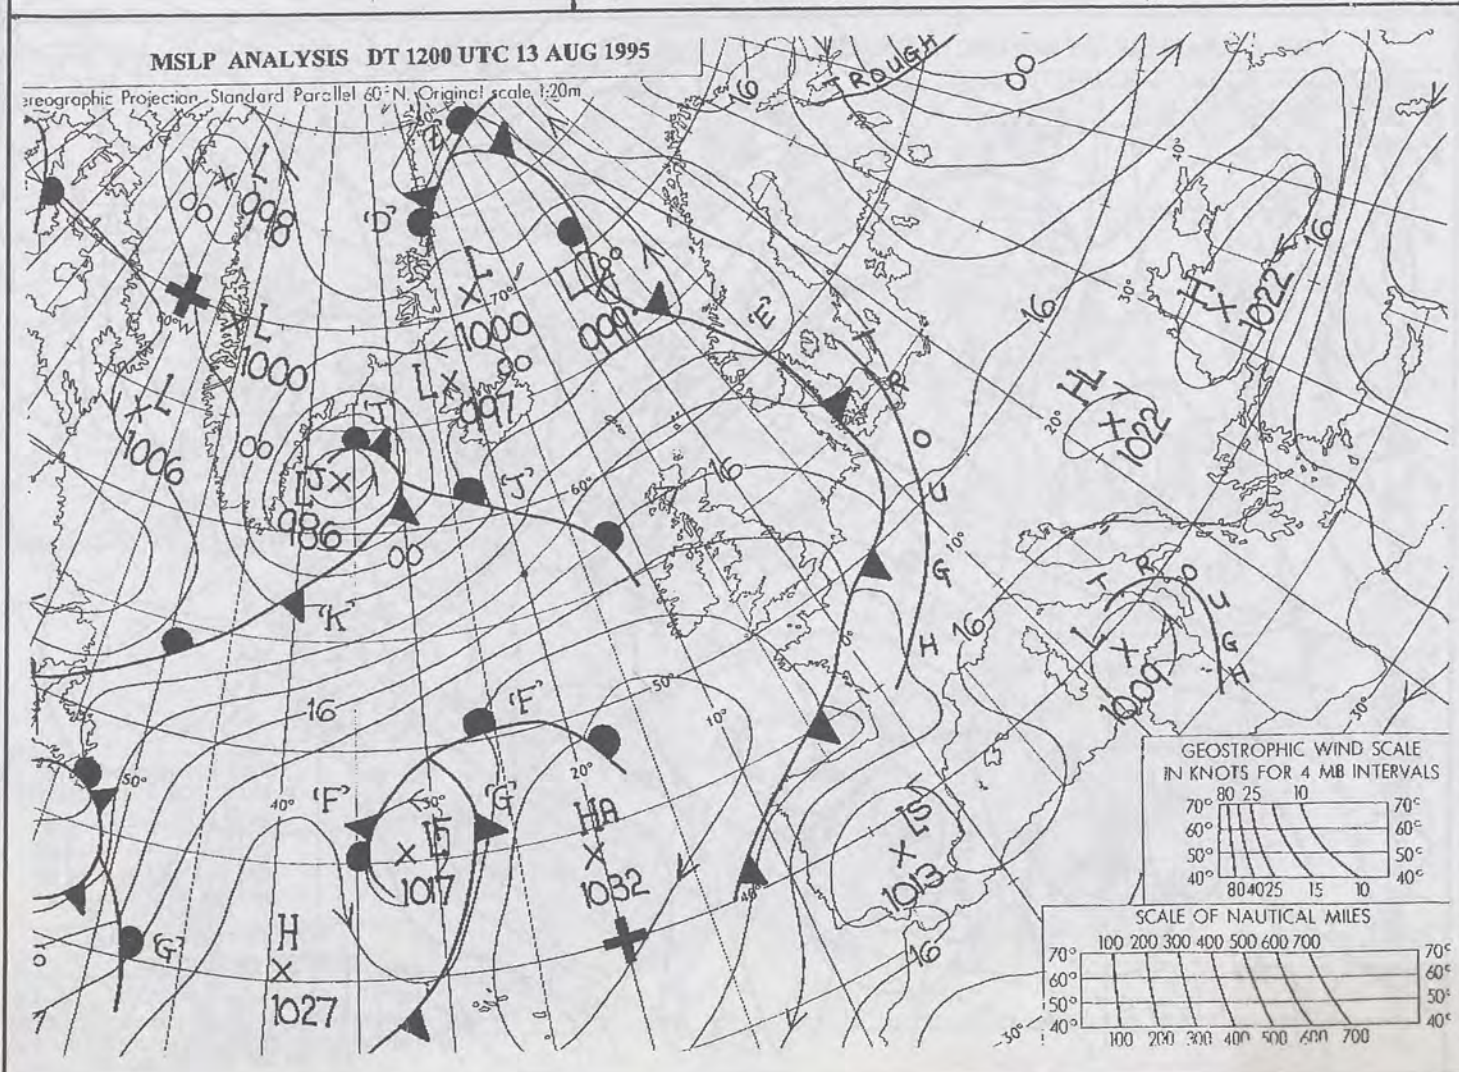 MSLP ANALYSIS DT 1200 UTC 13 AUG 1995
ereographic Projection Standard Parallel 60°N. Original scale 1:20m
TROUGH
00
16
40°
L
998
00
'D'
L
1000
70°
L
00
999
'E'
16
H
1022
30°
16
60°W
L
1000
L
997
00
TROUGH
HL
1022
20°
L
1006
00
'J'
LJ
986
00
'J'
60°
16
10°
0°
TROUGH
L
1009
30°
16
'K'
16
50°
10°
'F'
20°
50°
40°
'F'
30°
'G'
LF
1017
HA
1032
LS
1013
40°
16
'G'
H
1027
30°
GEOSTROPHIC WIND SCALE
IN KNOTS FOR 4 MB INTERVALS
80 25 10
70° 70°
60° 60°
50° 50°
40° 40°
80 40 25 15 10
SCALE OF NAUTICAL MILES
100 200 300 400 500 600 700
70° 70°
60° 60°
50° 50°
40° 40°
100 200 300 400 500 600 700